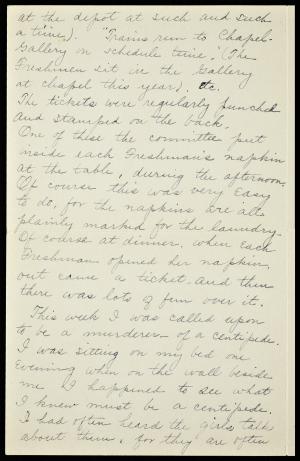 at the depot at such and such
a time). "Trains run to Chapel-
Gallery on schedule time". (The
Freshmen sit in the Gallery
at chapel this year), etc.
The tickets were regularly punched
and stamped on the back.
One of these the committee put
inside each Freshman's napkin
at the table, during the afternoon.
Of course this was very easy
to do, for the napkins are all
plainly marked for the laundry.
Of course at dinner, when each
Freshman opened her napkin,
out came a ticket. And then
there was lots of fun over it.
This week I was called upon
to be a murderer - of a centipede.
I was sitting on my bed one
evening when on the wall beside
me I happened to see what
I knew must be a centipede.
I had often heard the girls talk
about them, for they are often